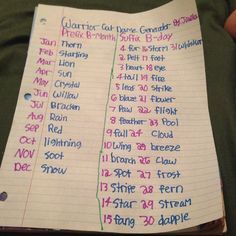 Warrior Cat Name Generator By:
Prefix B-Month Suffix B-day
Jan Thorn
Feb Starling
Mar Lion
Apr Sun
May Crystal
Jun Willow
Jul Bracken
Aug Rain
Sep Red
Oct lightning
Nov Soot
Dec Snow
1 fur 16 Storm 31 Whisker
2 Pelt 17 foot
3 heart 18 eye
4 tail 19 fire
5 leaf 20 Strike
6 blaze 21 flower
7 Paw 22 flight
8 feather 23 Pool
9 fall 24 Cloud
10 Wing 25 breeze
11 branch 26 Claw
12 Spot 27 frost
13 Stripe 28 fern
14 Star 29 Stream
15 fang 30 dapple